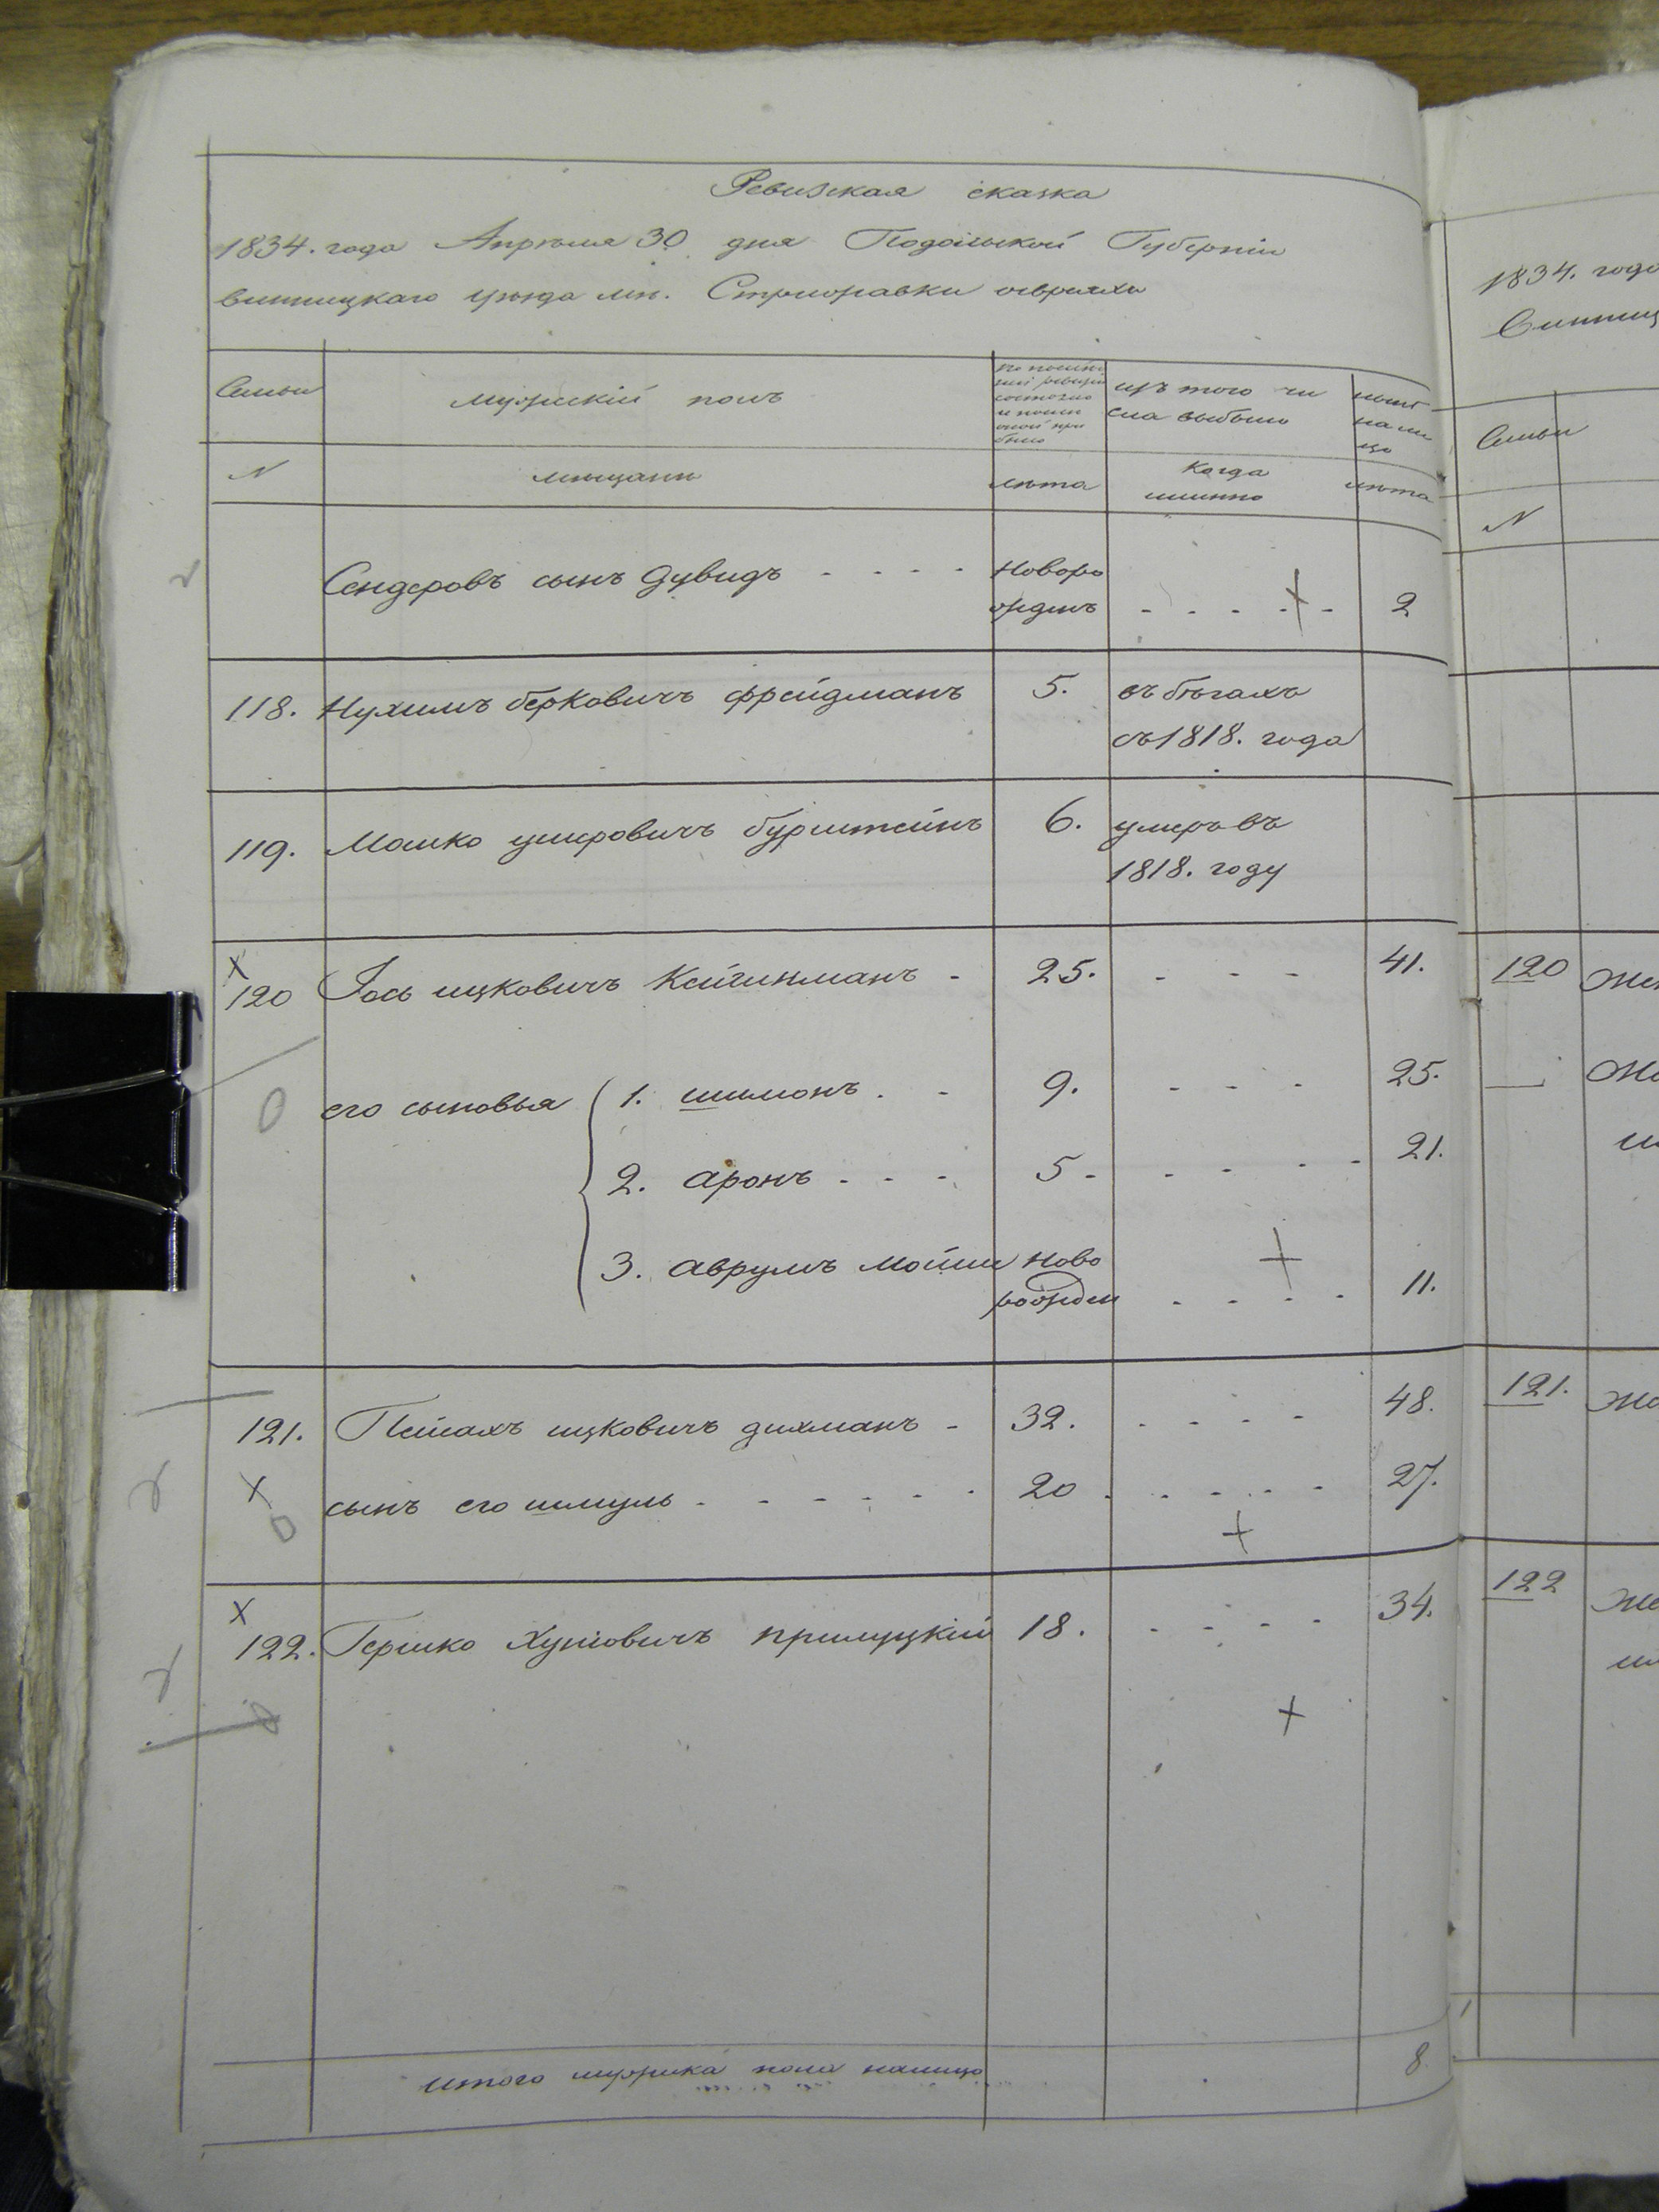 Ревизская сказка
1834. года Апреля 30 дня Подольской Губернiи
винницкаго уезда мн. Стрижавки о евреяхъ
Семьи
мужескiй полъ
по послѣд
ней ревизiи
состояло
и после
оной при
было
изъ того чи
сла выбыло
нынѣ
на ли
цо
N
мещане
лѣта
Когда
именно
лѣта
Сендеровъ сынъ Дувидъ - - - - Новоро
жденъ - - - - - 2
118. Нухимъ берковичъ фрейдманъ 5. въ бѣгахъ
съ 1818. года
119. Мошко умеровичъ бурштейнъ 6. умеръ въ
1818. году
120 Iось ицковичъ Клейнманъ - 25. - - - 41.
его сыновья 1. шимонъ . - 9. - - - 25.
2. аронъ . - - 5 - - - - - 21.
3. аврумъ мойше Ново
рожден - - - - 11.
121. Пейсахъ ицковичъ дихманъ - 32. - - - - 48.
сынъ его шмуль - - - - - - 20 . - - - - 27.
122. Гершко Хунiовичъ прилуцкiй 18. - - - - 34.
итого мужеска пола налицо 8
1834. года
Винниц
Семьи
N
120
121.
122